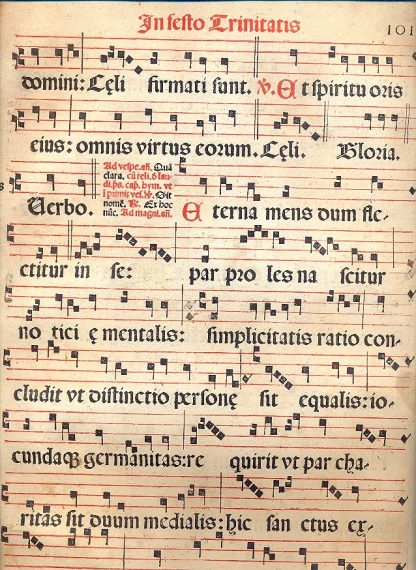 In festo Trinitatis
101
domini: Cęli firmati sunt. ℣. Et spiritu oris
eius: omnis virtus eorum. Cęli. Gloria.
8
Uerbo.
Ad vespe. añ. Quā
clara. cū reli. d̄ lau-
di. ps. cap. hym. vt
ī primis ves. ℣. Sit
nomē. ℟. Ex hoc
nūc. Ad magni. añ.
Eterna mens dum flc-
ctitur in se: par pro les na scitur
no tici ę mentalis: simplicitatis ratio con-
cludit vt distinctio personę sit equalis: io-
cundaqꝫ germanitas: re quirit vt par cha-
ritas sit duum medialis: hic san ctus ex-